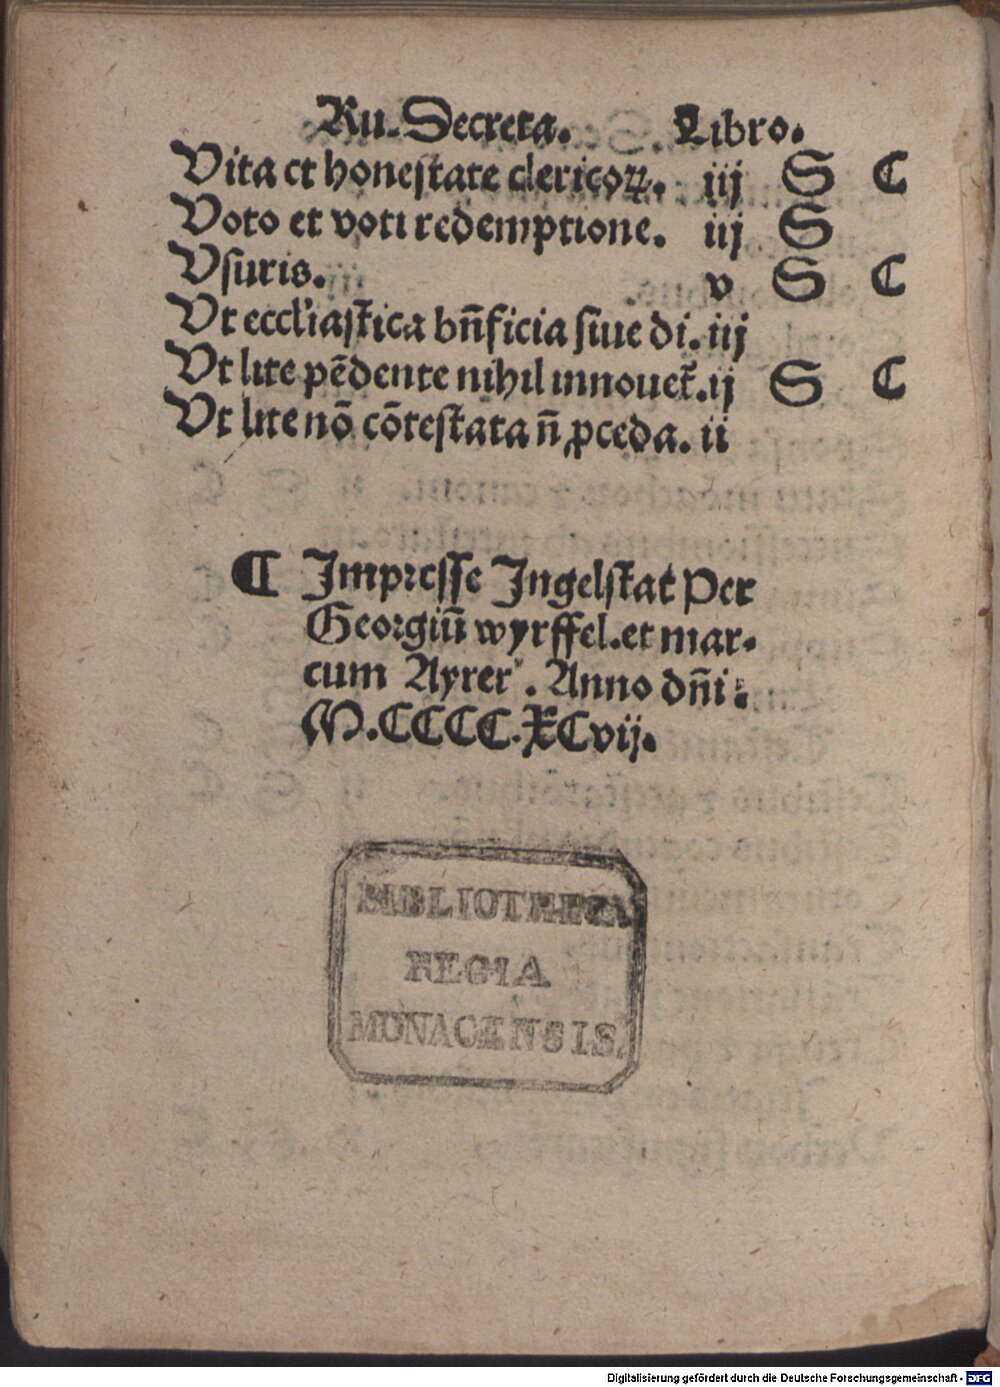 Ru. Decreta. Libro.
Vita et honestate clericoꝝ. iij S C
Voto et voti redemptione. iij S
Vsuris. v S C
Vt eccl'iastica bn̄ficia siue di. iij
Vt lite pēdente nihil innouet᷑. ij S C
Vt lite nō cōtestata n̄ ꝓceda. ii
¶ Impresse Ingelstat Per
Georgiū wyrffel. et mar-
cum Ayrer. Anno dn̄i:
M.CCCC.XCvij.
BIBLIOTHECA
REGIA
MONACENSIS.
Digitalisierung gefördert durch die Deutsche Forschungsgemeinschaft - DFG